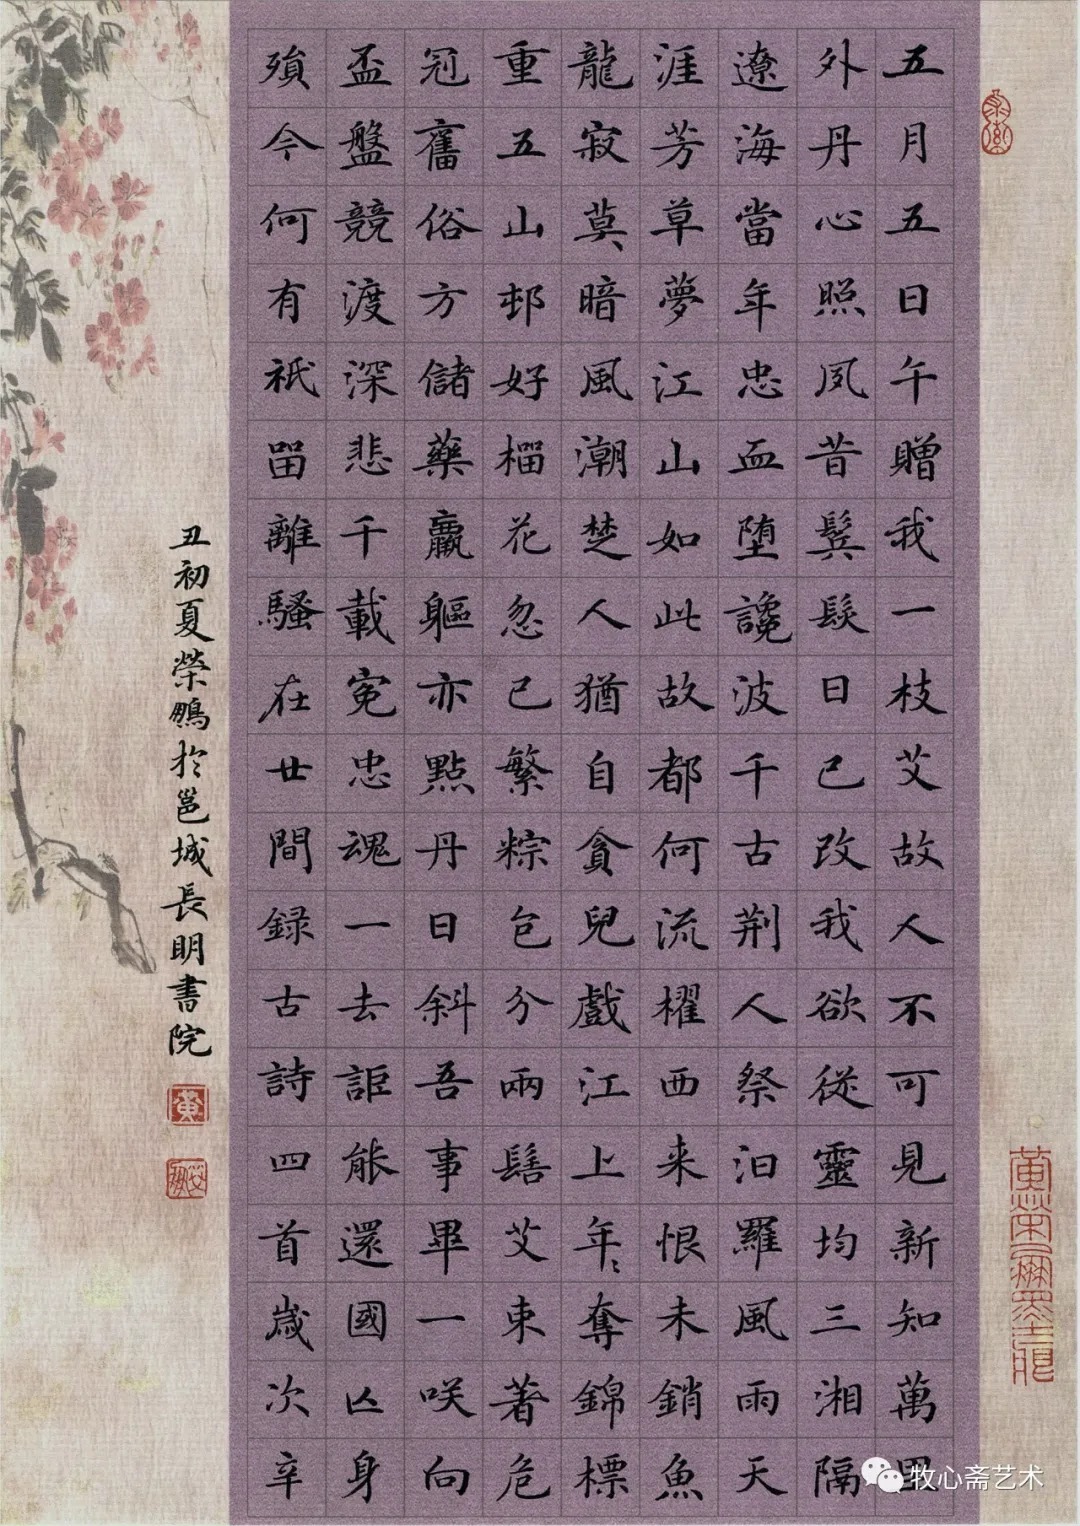 五月五日午贈我一枝艾故人不可見新知萬里
外丹心照夙昔鬓髮日已改我欲從靈均三湘隔
遼海當年忠血堕讒波千古荆人祭汨羅風雨天
涯芳草夢江山如此故都何流櫂西来恨未銷魚
龍寂莫暗風潮楚人猶自貪兒戲江上年〻奪錦標
重五山邨好榴花忽已繁粽包分兩髻艾束著危
冠舊俗方儲藥羸軀亦點丹日斜吾事畢一咲向
盃盤競渡深悲千載寃忠魂一去詎能還國亾身
殞今何有祇留離騷在廿間録古詩四首歲次辛
丑初夏榮鵬於邕城長明書院
黄
牧心斋艺术